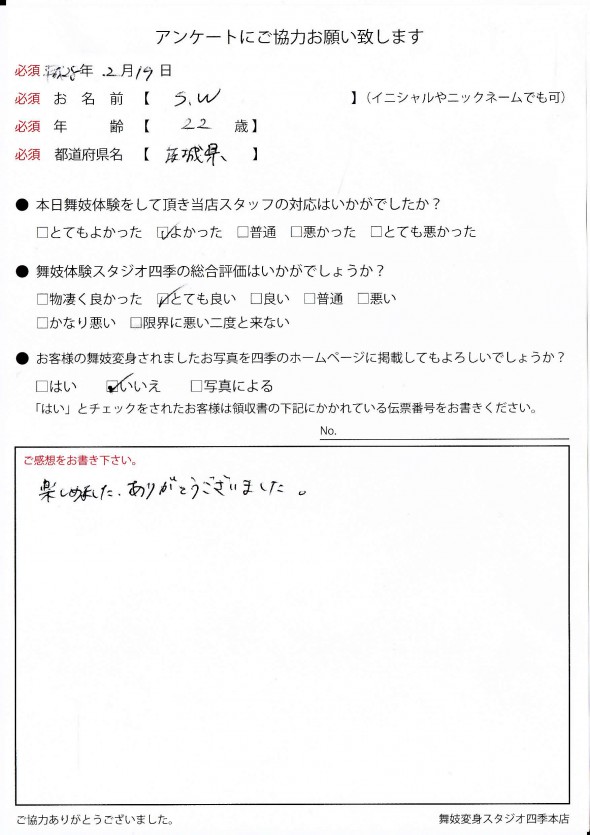 アンケートにご協力お願い致します
必須 平成28年 2月19日
必須 お名前 【 S.W 】（イニシャルやニックネームでも可）
必須 年齢 【 22 歳】
必須 都道府県名 【 茨城県 】
● 本日舞妓体験をして頂き当店スタッフの対応はいかがでしたか？
□とてもよかった ☑よかった □普通 □悪かった □とても悪かった
● 舞妓体験スタジオ四季の総合評価はいかがでしょうか？
□物凄く良かった ☑とても良い □良い □普通 □悪い
□かなり悪い □限界に悪い二度と来ない
● お客様の舞妓変身されましたお写真を四季のホームページに掲載してもよろしいでしょうか？
□はい ☑いいえ □写真による
「はい」とチェックをされたお客様は領収書の下記にかかれている伝票番号をお書きください。
No.
ご感想をお書き下さい。
楽しめました、ありがとうございました。
ご協力ありがとうございました。
舞妓変身スタジオ四季本店